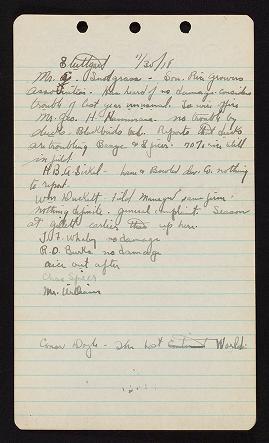 Stuttgart 11/25/18
Mr. Snodgrass - Sou. Rice Growers
Association. Has heard of no damage. Considers
trouble of last year unusual. In same office
Mr. Geo. H. no trouble by
ducks. Blackbirds bad. Reports that ducks
are troubling & 70% rice still
in field.
H.B.G. - Law & nothing
to report.
Wm Duckett - Field Manager same firm.
nothing definite. general complaint. Season
at earlier than up here.
J. F. no damage
R. D. Burks no damage
rice out after
Chas Spicer
Mr. Williams
Conan Doyle - The Lost World